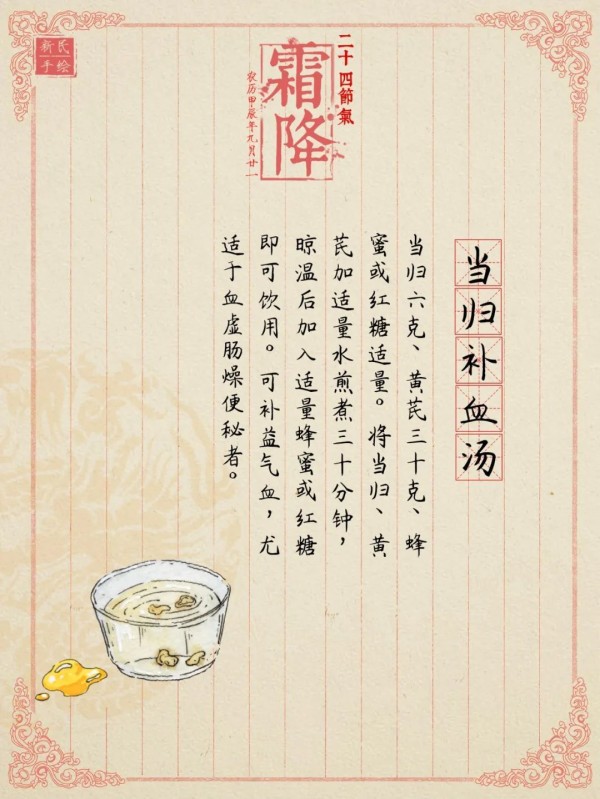 新民
手绘
二十四節氣
霜降
农历甲辰年九月廿一
当归补血汤
当归六克、黄芪三十克、蜂
蜜或红糖适量。将当归、黄
芪加适量水煎煮三十分钟，
晾温后加入适量蜂蜜或红糖
即可饮用。可补益气血，尤
适于血虚肠燥便秘者。